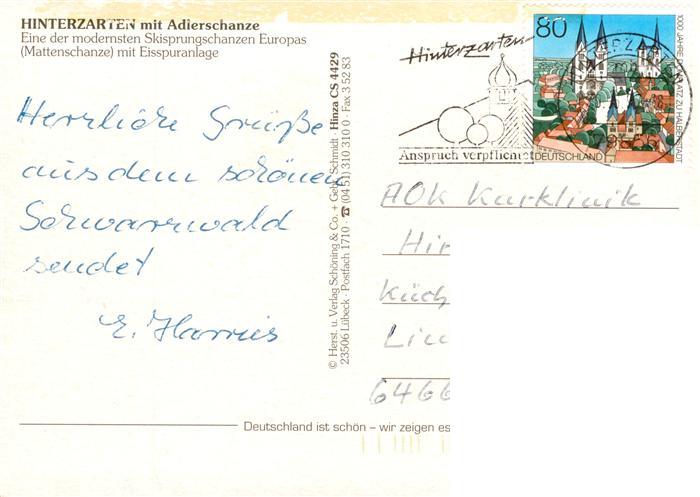 HINTERZARTEN mit Adierschanze
Eine der modernsten Skisprungschanzen Europas
(Mattenschanze) mit Eisspuranlage
Herrliche Grüße
aus dem schönen
Schwarzwald
sendet
© Herst. u. Verlag Schöning & Co. + Gebr. Schmidt · Hinza CS 4429
23506 Lübeck · Postfach 1710 · ☎ (04 51) 310 310 0 · Fax 3 52 83
Hinterzarten
Anspruch verpflichtet
80
DEUTSCHLAND
1000 JAHRE DOMPLATZ ZU HALBERSTADT
AOK Kurklinik
Hin
Küch
Lin
6466
Deutschland ist schön – wir zeigen es